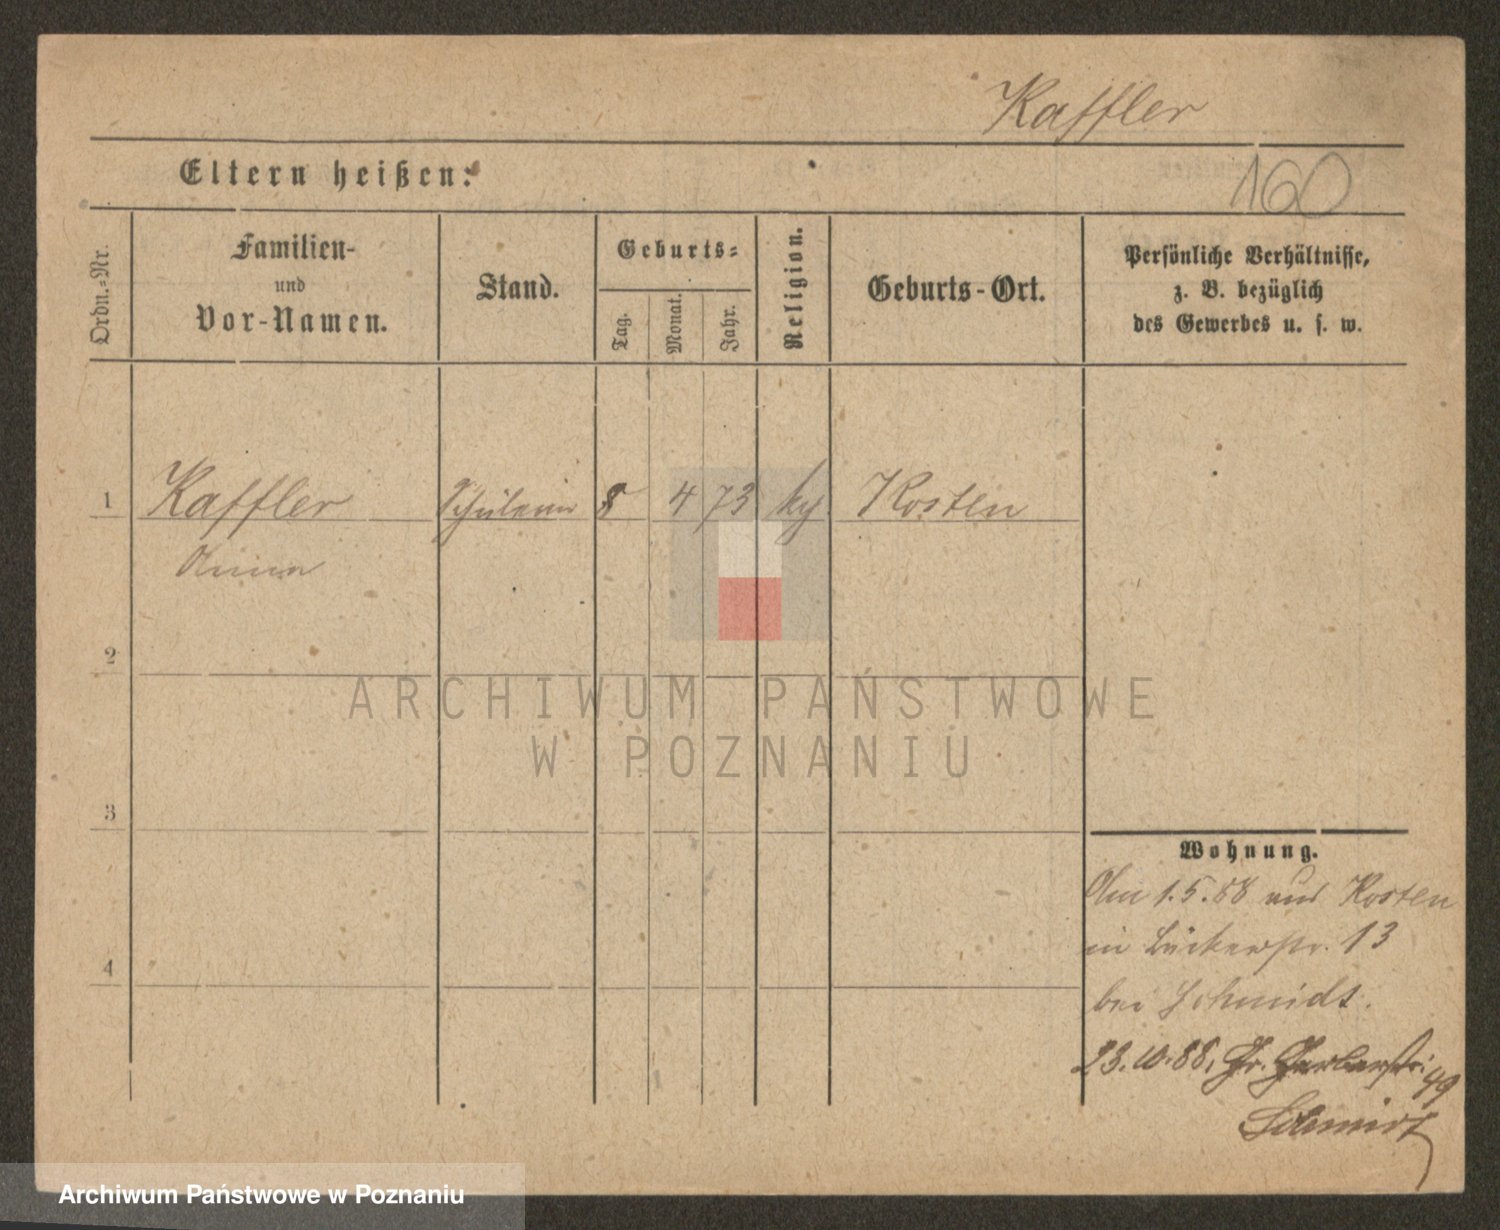 Kaffler
Eltern heißen:
160
Ordn.-Nr.
Familien-
und
Vor-Namen.
Stand.
Geburts-
Tag.
Monat.
Jahr.
Religion.
Geburts-Ort.
Persönliche Verhältnisse,
z. B. bezüglich
des Gewerbes u. s. w.
1 Kaffler Schülerin 8 4 73 Kosten
Anna
2
ARCHIWUM PAŃSTWOWE
W POZNANIU
3
Wohnung.
Am 1.5.88 aus Kosten
in Bäckerstr. 13
4
bei Schmidt.
23.10.88, Gr. Gerberstr. 49
Schmidt
Archiwum Państwowe w Poznaniu